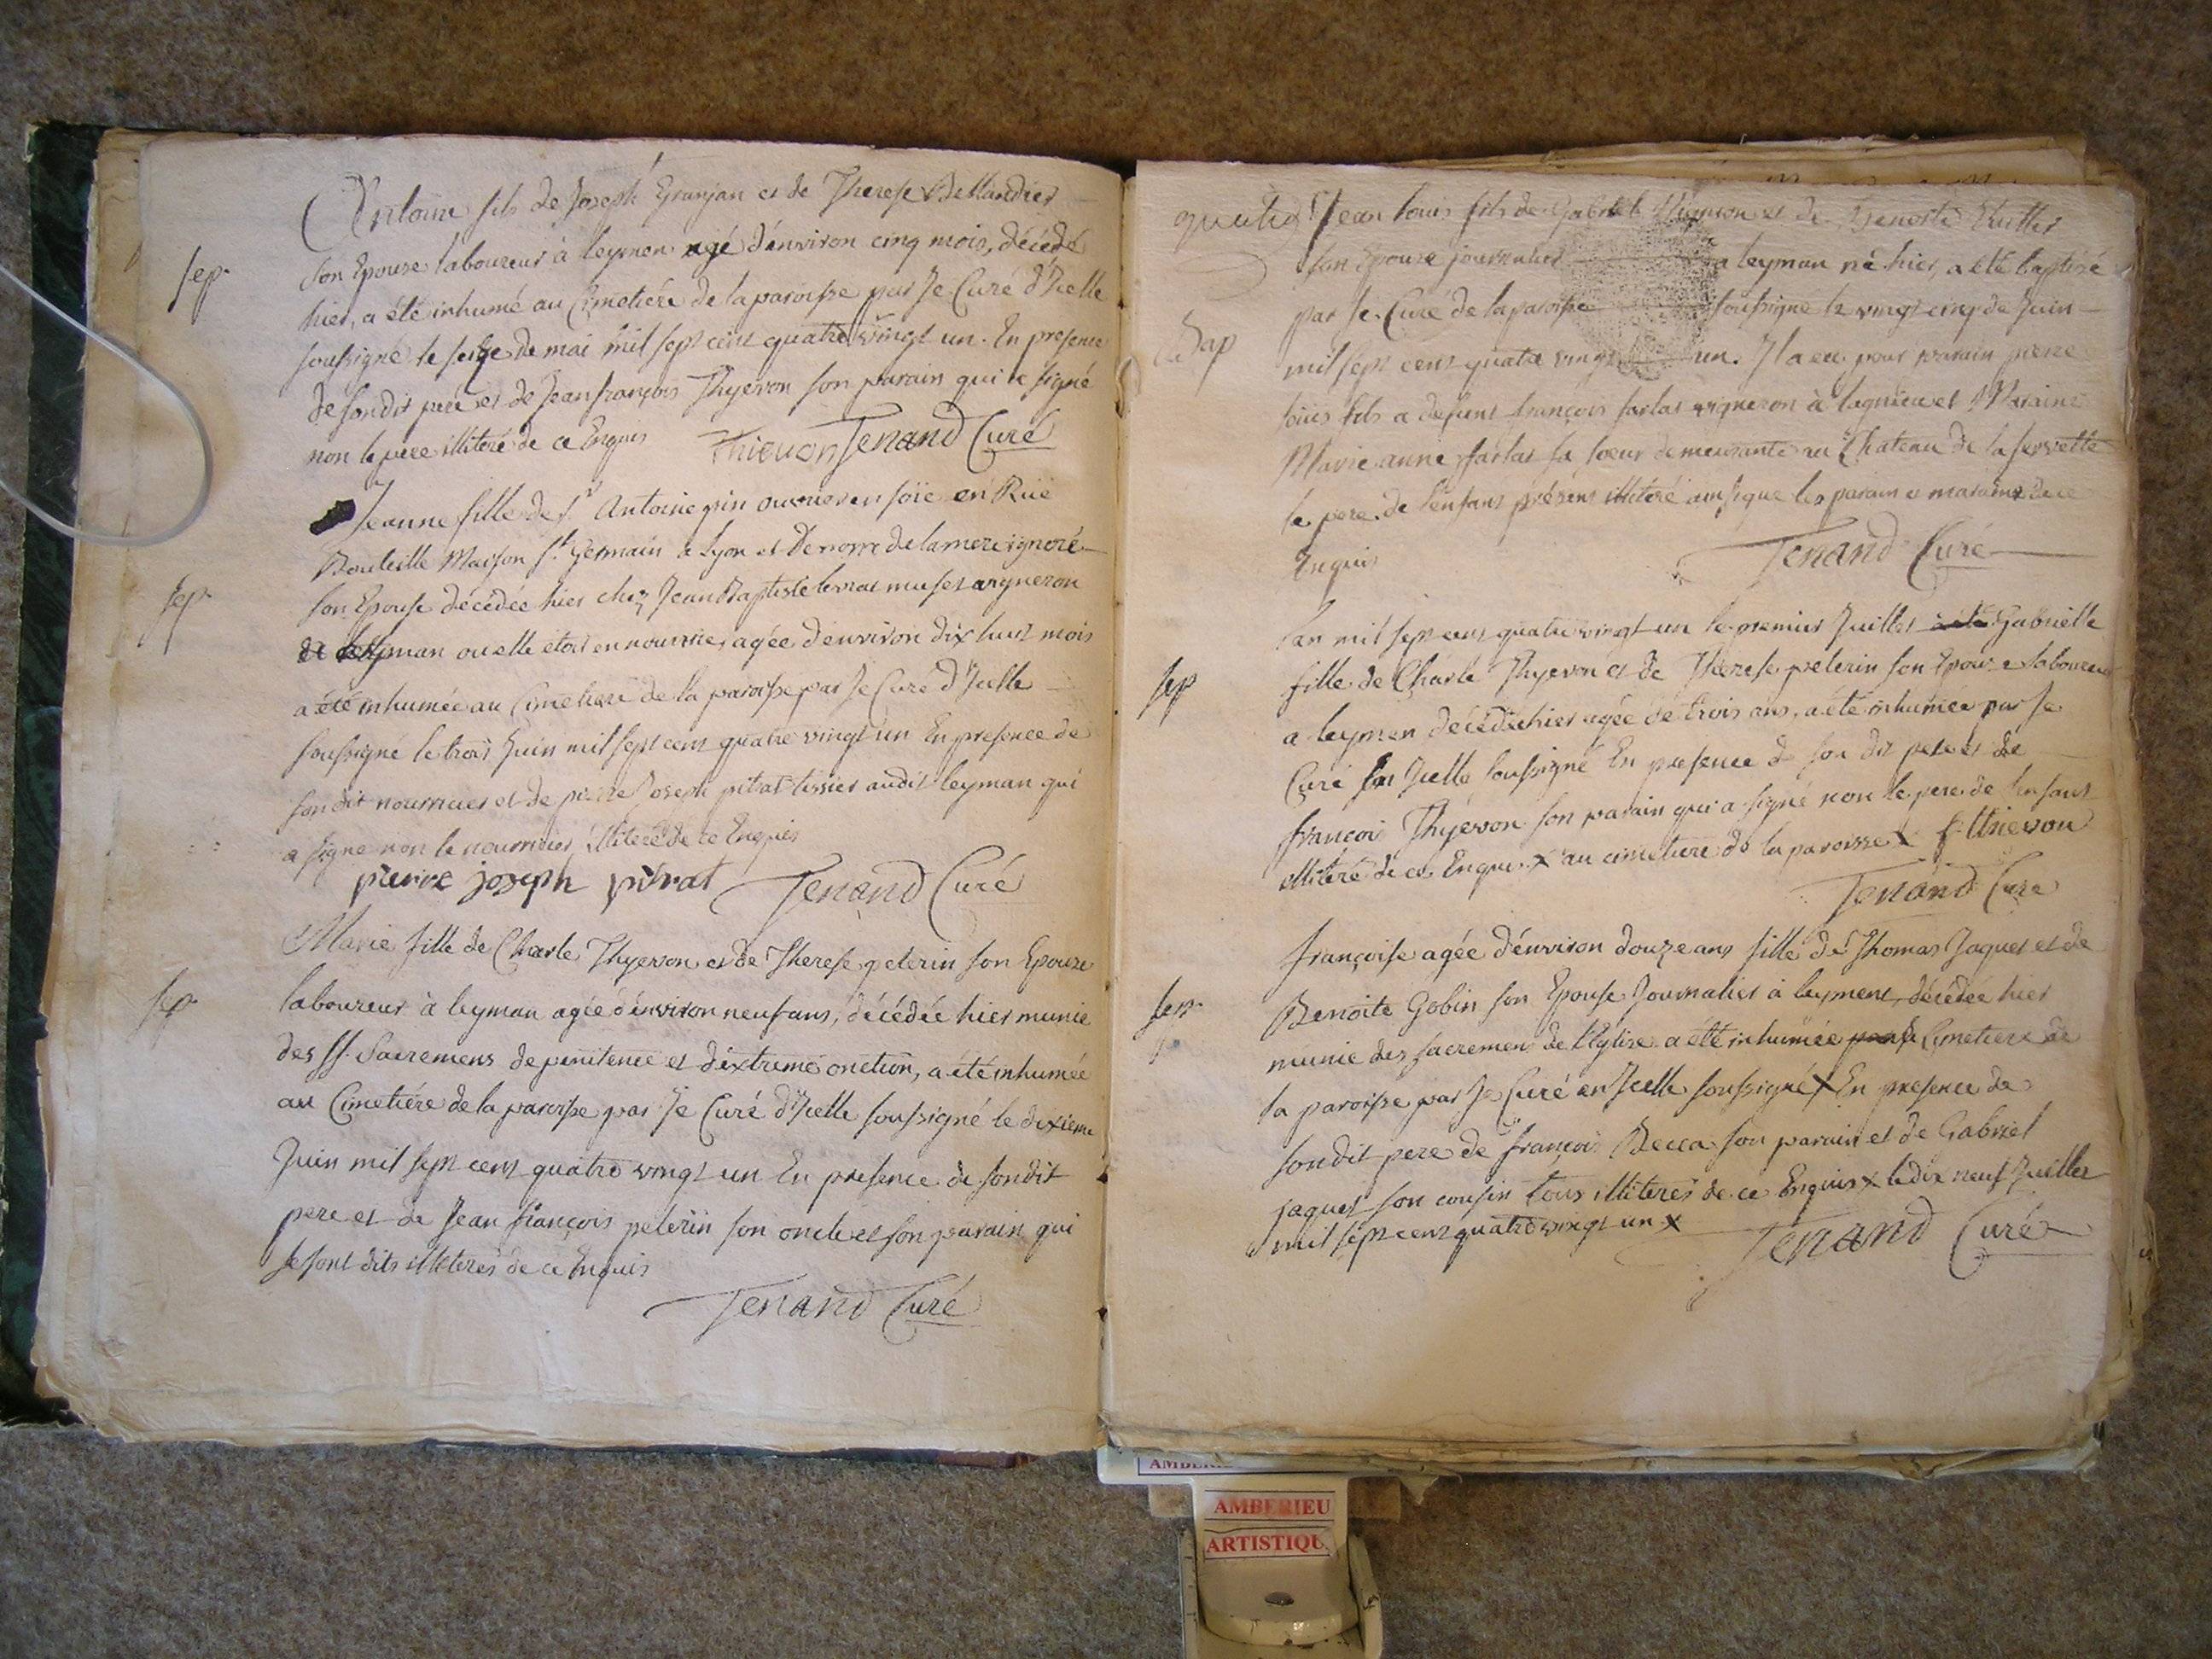 Antoine fils de Joseph Granjan et de Therese Bellandier
sep.
son Epouse laboureur à leymen agé d'environ cinq mois, décédé
hier, a été inhumé au Cimetiére de la paroisse par Je Curé d'Icelle
soussigné le seize de mai mil sept cent quatre vingt un. En presence
de son dit pere et de Jean françois Thyevon son parain qui a signé
non le pere illiteré de ce Enquis Thievon Tenand Curé
Jeanne fille de Sr Antoine pin ouvrier en soïe en Rüe
Bouteille Maison St. Germain a Lyon et De nom de la mere ignoré
sep.
son Epouse décédée hier chez Jean Baptiste levrat muset vigneron
de leyman ou elle etoit en nourrice, agée d'environ dix huit mois
a été inhumée au Cimetiere de la paroisse par Je Curé d'Icelle
soussigné le trois Juin mil sept cent quatre vingt un En presence de
son dit nourricier et de pierre Joseph pitrat tissier audit leyman qui
a signé non le nourricier illiteré de ce Enquis
pierre joseph pitrat Tenand Curé
Marie fille de Charle Thyevon et de Therese peterin son Epouze
sep.
laboureur à leyman agée d'environ neuf ans, décédée hier munie
des SS. Sacremens de penitence et d'extreme onction, a été inhumée
au Cimetiére de la paroisse par Je Curé d'Icelle soussigné le dixieme
Juin mil sept cent quatre vingt un En presence de son dit
pere et de Jean françois peterin son oncle et son parain qui
se sont dits illiterés de ce Enquis
Tenand Curé
Jean louis fils de Gabriel et de Benoite
son Epouze journalier a leyman né hier, a été baptisé
par Je Curé de la paroisse soussigné le vingt cinq de Juin
Bap
mil sept cent quatre vingt un. Il a eu pour parain pierre
loüis fils a defunt françois farlat vigneron à lagnieu et Maraine
Marie anne farlat sa soeur demeurante au Chateau de la servette
le pere de l'enfant présent illiteré ainsi que les parain et maraine de ce
Enquis Tenand Curé
L'an mil sept cent quatre vingt un le premier Juillet a été Gabrielle
sep
fille de Charle Thyevon et de Thérese peterin son Epouze laboureur
a leymen décédée hier agée de trois ans, a été inhumée par Je
Curé en Icelle soussigné En presence de son dit pere et de
françois Thyévon son parain qui a signé non le pere de l'enfant
illiteré de ce Enquis x au cimetiere de la paroisse x f. thievon
Tenand Curé
françoise agée d'énviron douze ans fille de Thomas Jaquet et de
sep.
Benoite Gobin son Epouse Journalier à leyment, décédée hier
munie des sacremens de l'Eglise a été inhumée Cimetiere de
la paroisse par Je Curé en Icelle soussigné x En presence de
son dit pere de françois Becca son parain et de Gabriel
jaquet son cousin tous illiteres de ce Enquis x le dix neuf Juillet
mil sept cent quatre vingt un x Tenand Curé
AMBERIEU
ARTISTIQU